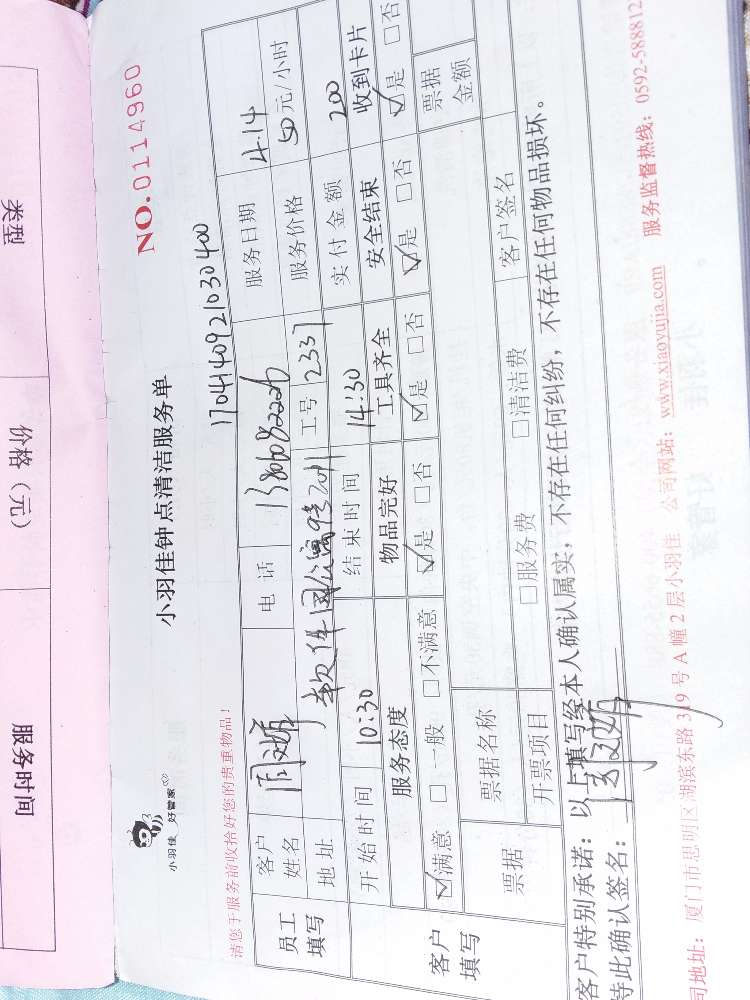 类型
价格（元）
服务时间
小羽佳 好管家
小羽佳钟点清洁服务单
NO.0114960
请您于服务前收拾好您的贵重物品！
1704140921030400
员工填写
客户姓名
电话
服务日期 4.14
地址 软件园
工号 2337
服务价格 50元/小时
开始时间 10:30
结束时间 14:30
实付金额 200
客户填写
服务态度 物品完好 工具齐全 安全结束 收到卡片
☑满意 □一般 □不满意 ☑是 □否 ☑是 □否 ☑是 □否 ☑是 □否
票据 票据名称 客户签名 票据金额
开票项目 □服务费 □清洁费
客户特别承诺：以上填写经本人确认属实，不存在任何纠纷，不存在任何物品损坏。
特此确认签名：
司地址：厦门市思明区湖滨东路319号A幢2层小羽佳 公司网站：www.xiaoyujia.com 服务监督热线：0592-588812